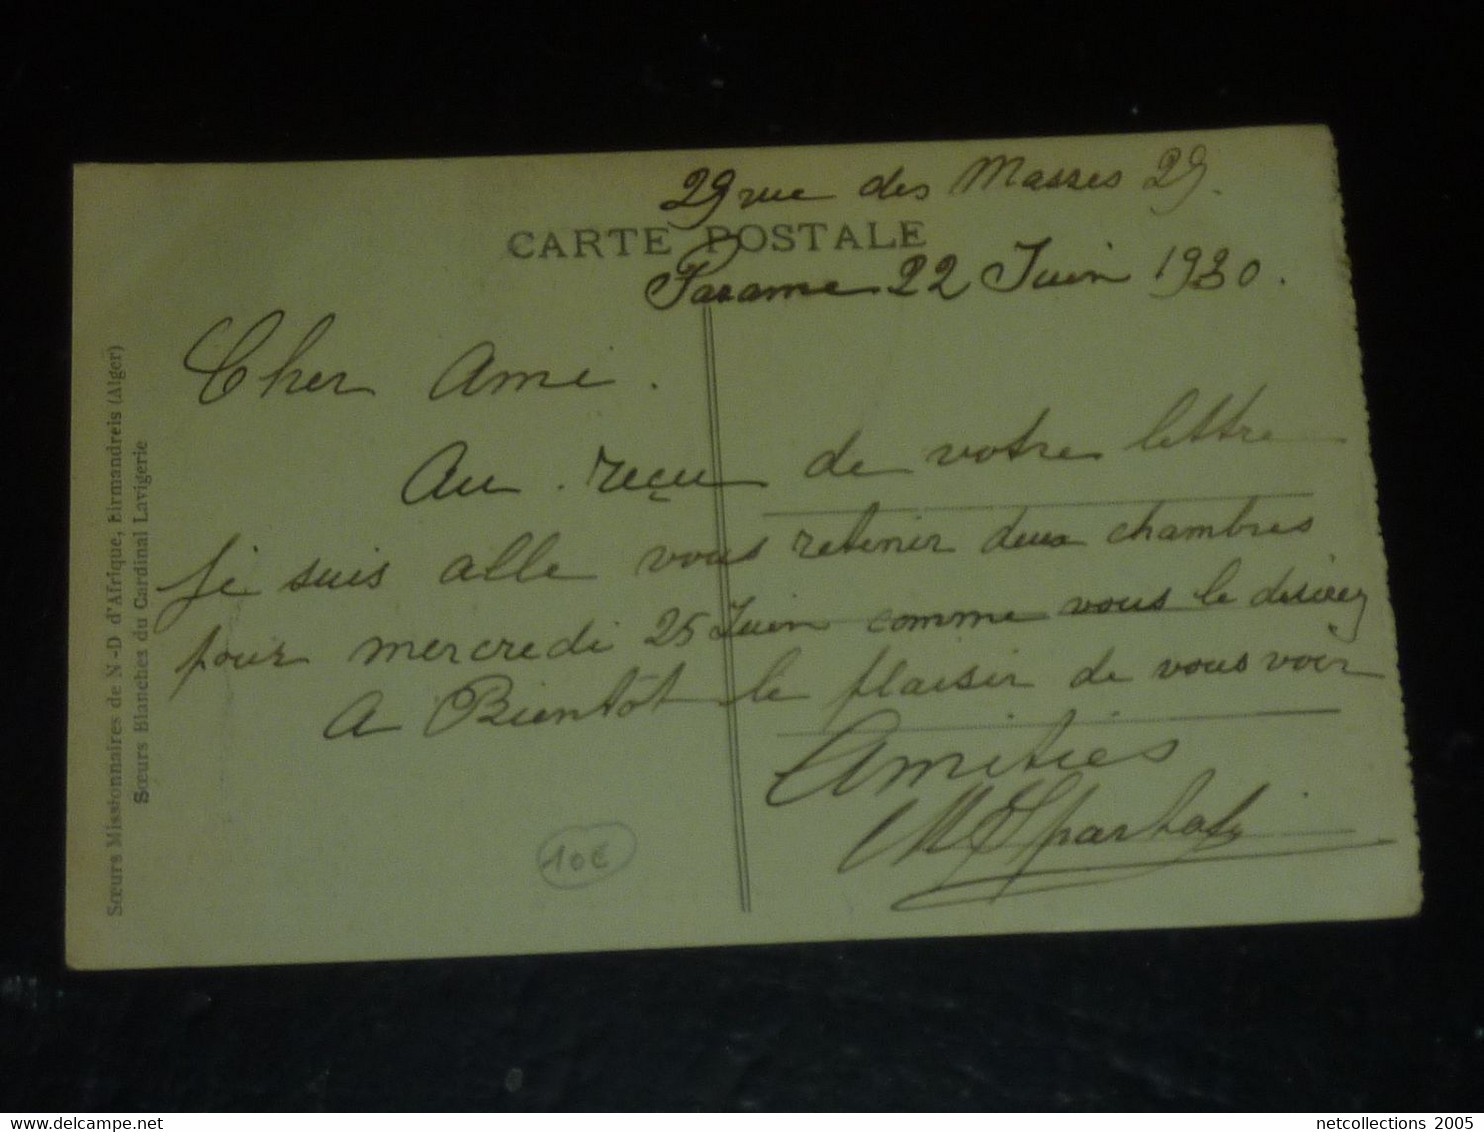 29 rue des Masses 29.
CARTE POSTALE
Parame 22 Juin 1930.
Cher Ami.
Au reçu de votre lettre
je suis alle vous retenir deux chambres
pour mercredi 25 Juin comme vous le desirez
A Bientôt le plaisir de vous voir
Amities
10€
Sœurs Missionnaires de N-D d'Afrique, Birmandreis (Alger)
Sœurs Blanches du Cardinal Lavigerie
netcollections 2005